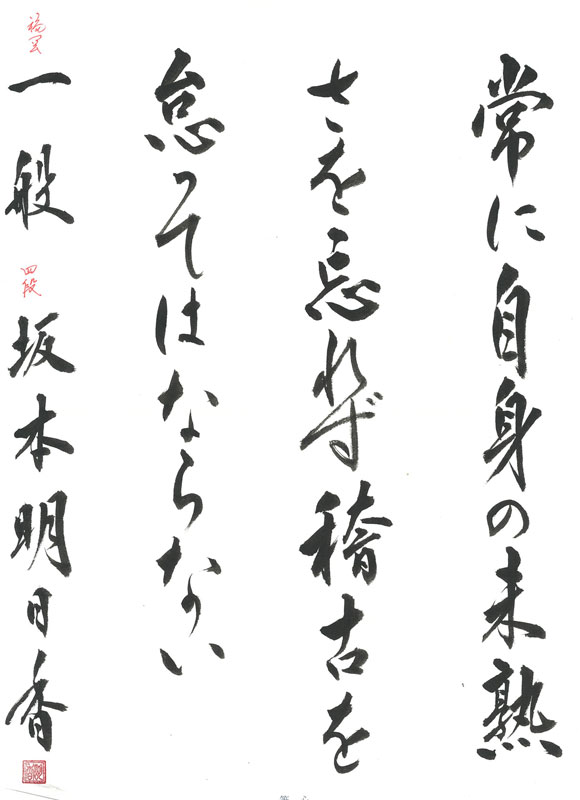 常に自身の未熟
さを忘れず稽古を
怠ってはならない
一般 四段 坂本明日香